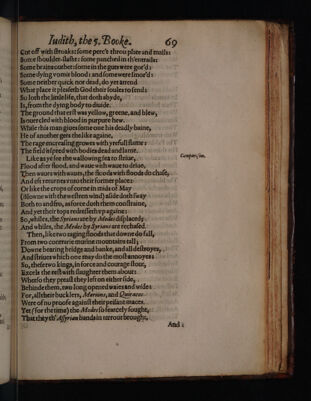 Iudith, the 5. Booke. 69
Cut off with stroaks: some perc't throu plate and mails:
Some shoulder-slasht: some punched in th'entrails:
Some brains outbet: some in the guts were gor'd:
Some dying vomit blood: and some were smor'd:
Some neither quick nor dead, do yet attend
What place it pleaseth God their soules to send:
So loth the litle life, that doth abyde,
Is, from the dying body to diuide.
The ground that erst was yellow, greene, and blew,
Is ouercled with blood in purpure hew.
While this man giues some one his deadly baine,
He of another gets the like againe,
The rage encreasing growes with yrefull flame:
The field is spred with bodies dead and lame.
Like as ye see the wallowing sea to striue,
Comparison.
Flood after flood, and waue with waue to driue,
Then waues with waues, the floods with floods do chase,
And eft returnes vnto their former place:
Or like the crops of corne in mids of May
(blowne with the western wind) aside doth sway
Both to and fro, as force doth them constraine,
And yet their tops redresseth vp againe:
So, whiles, the Syrians are by Medes displaced:
And whiles, the Medes by Syrians are rechased.
Then, like two raging floods that downe do fall,
From two contrarie mountains tall;
Downe bearing bridge and banks, and all destroyes,
And striues which one may do the most annoyes:
So, these two kings, in force and courage stout,
Excels the rest with slaughter them about:
Wherso they preast they left on either side,
Behinde them, two long opened waies and wide:
For, all their bucklers, Morions, and Quiraces
Were of no proofe against their peisant maces.
Yet (for the time) the Medes so fearcely fought,
That they th' Assyrian bands in terrour brought,
And :